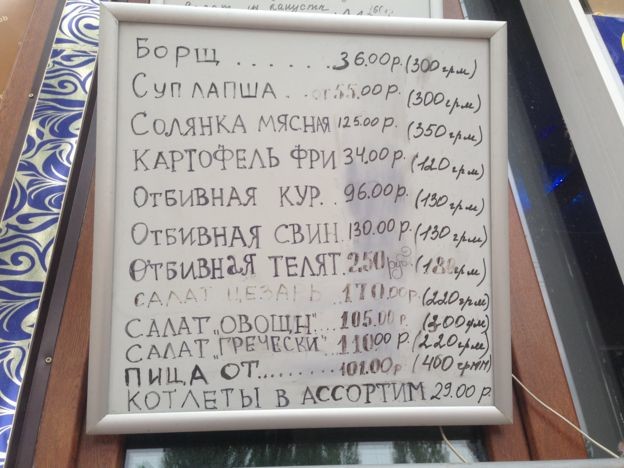 БОРЩ ....... 36.00р. (300 грм)
СУП ЛАПША .. от 55.00р. (300 грм)
СОЛЯНКА МЯСНАЯ 125.00 р. (350 грм)
КАРТОФЕЛЬ ФРИ 34.00р. (120 грм)
ОТБИВНАЯ КУР.. 96.00 р. (130 грм)
ОТБИВНАЯ СВИН. 130.00 р. (130 грм)
ОТБИВНАЯ ТЕЛЯТ. 250 руб (180 грм)
САЛАТ ЦЕЗАРЬ 170.00р. (220 грм)
САЛАТ „ОВОЩН"... 105.00 р. (200 грм)
САЛАТ „ГРЕЧЕСКИ" 110.00 р. (220 грм)
ПИЦА ОТ......... 101.00р (400 грмм)
КОТЛЕТЫ В АССОРТИМ 29.00 р.